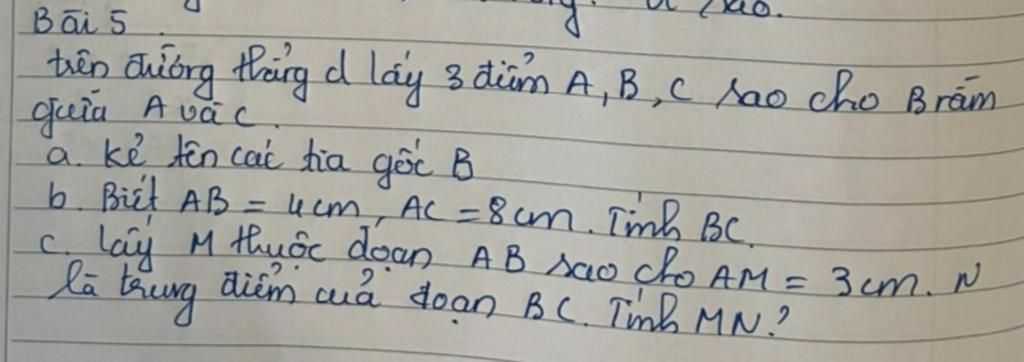 Bài 5
trên đường thẳng d lấy 3 điểm A, B, C sao cho B nằm
giữa A và C.
a. kể tên các tia gốc B
b. Biết AB = 4cm, AC = 8cm. Tính BC.
c. lấy M thuộc đoạn AB sao cho AM = 3cm. N
là trung điểm của đoạn BC. Tính MN?